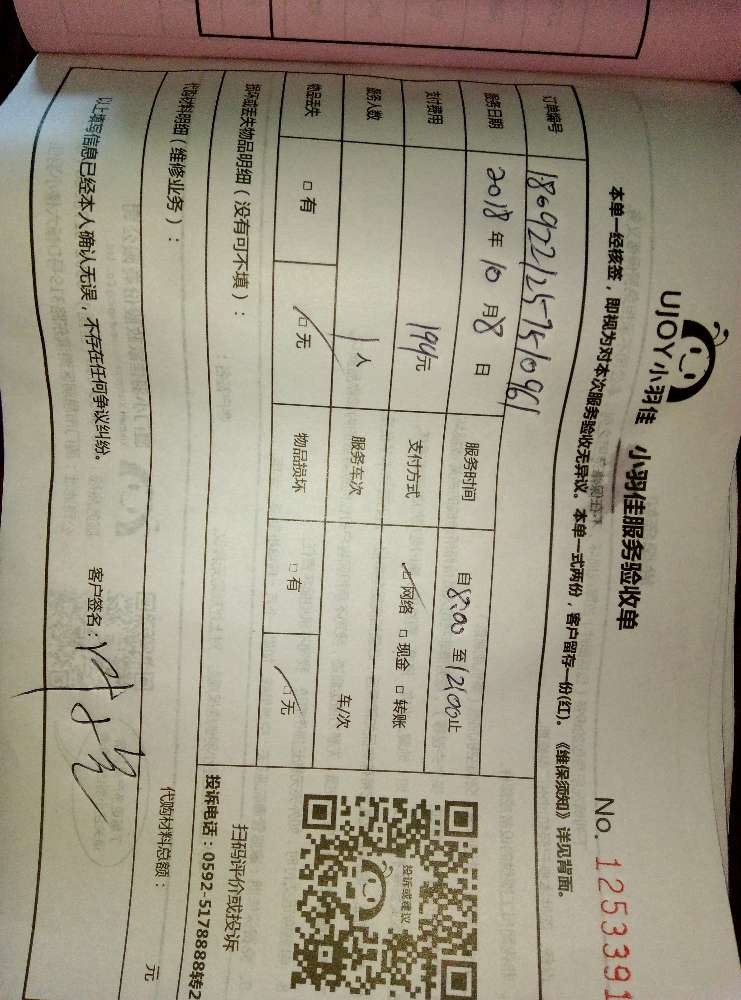 UJOY小羽佳 小羽佳服务验收单 No. 1253391
本单一经核签，即视为对本次服务验收无异议。本单一式两份，客户留存一份(红)。《维保须知》详见背面。
订单编号 1809221257510961
服务日期 2018年10月8日 服务时间 自8:00至12:00止
支付费用 194元 支付方式 ☑网络 □现金 □转账
服务人数 1人 服务车次 车/次
物品丢失 □有 ☑无 物品损坏 □有 ☑无
损坏或丢失物品明细（没有可不填）：
投诉或建议
扫码评价或投诉
投诉电话：0592-5178888转2
代购材料明细（维修业务）：
代购材料总额： 元
以上填写信息已经本人确认无误，不存在任何争议纠纷。 客户签名：